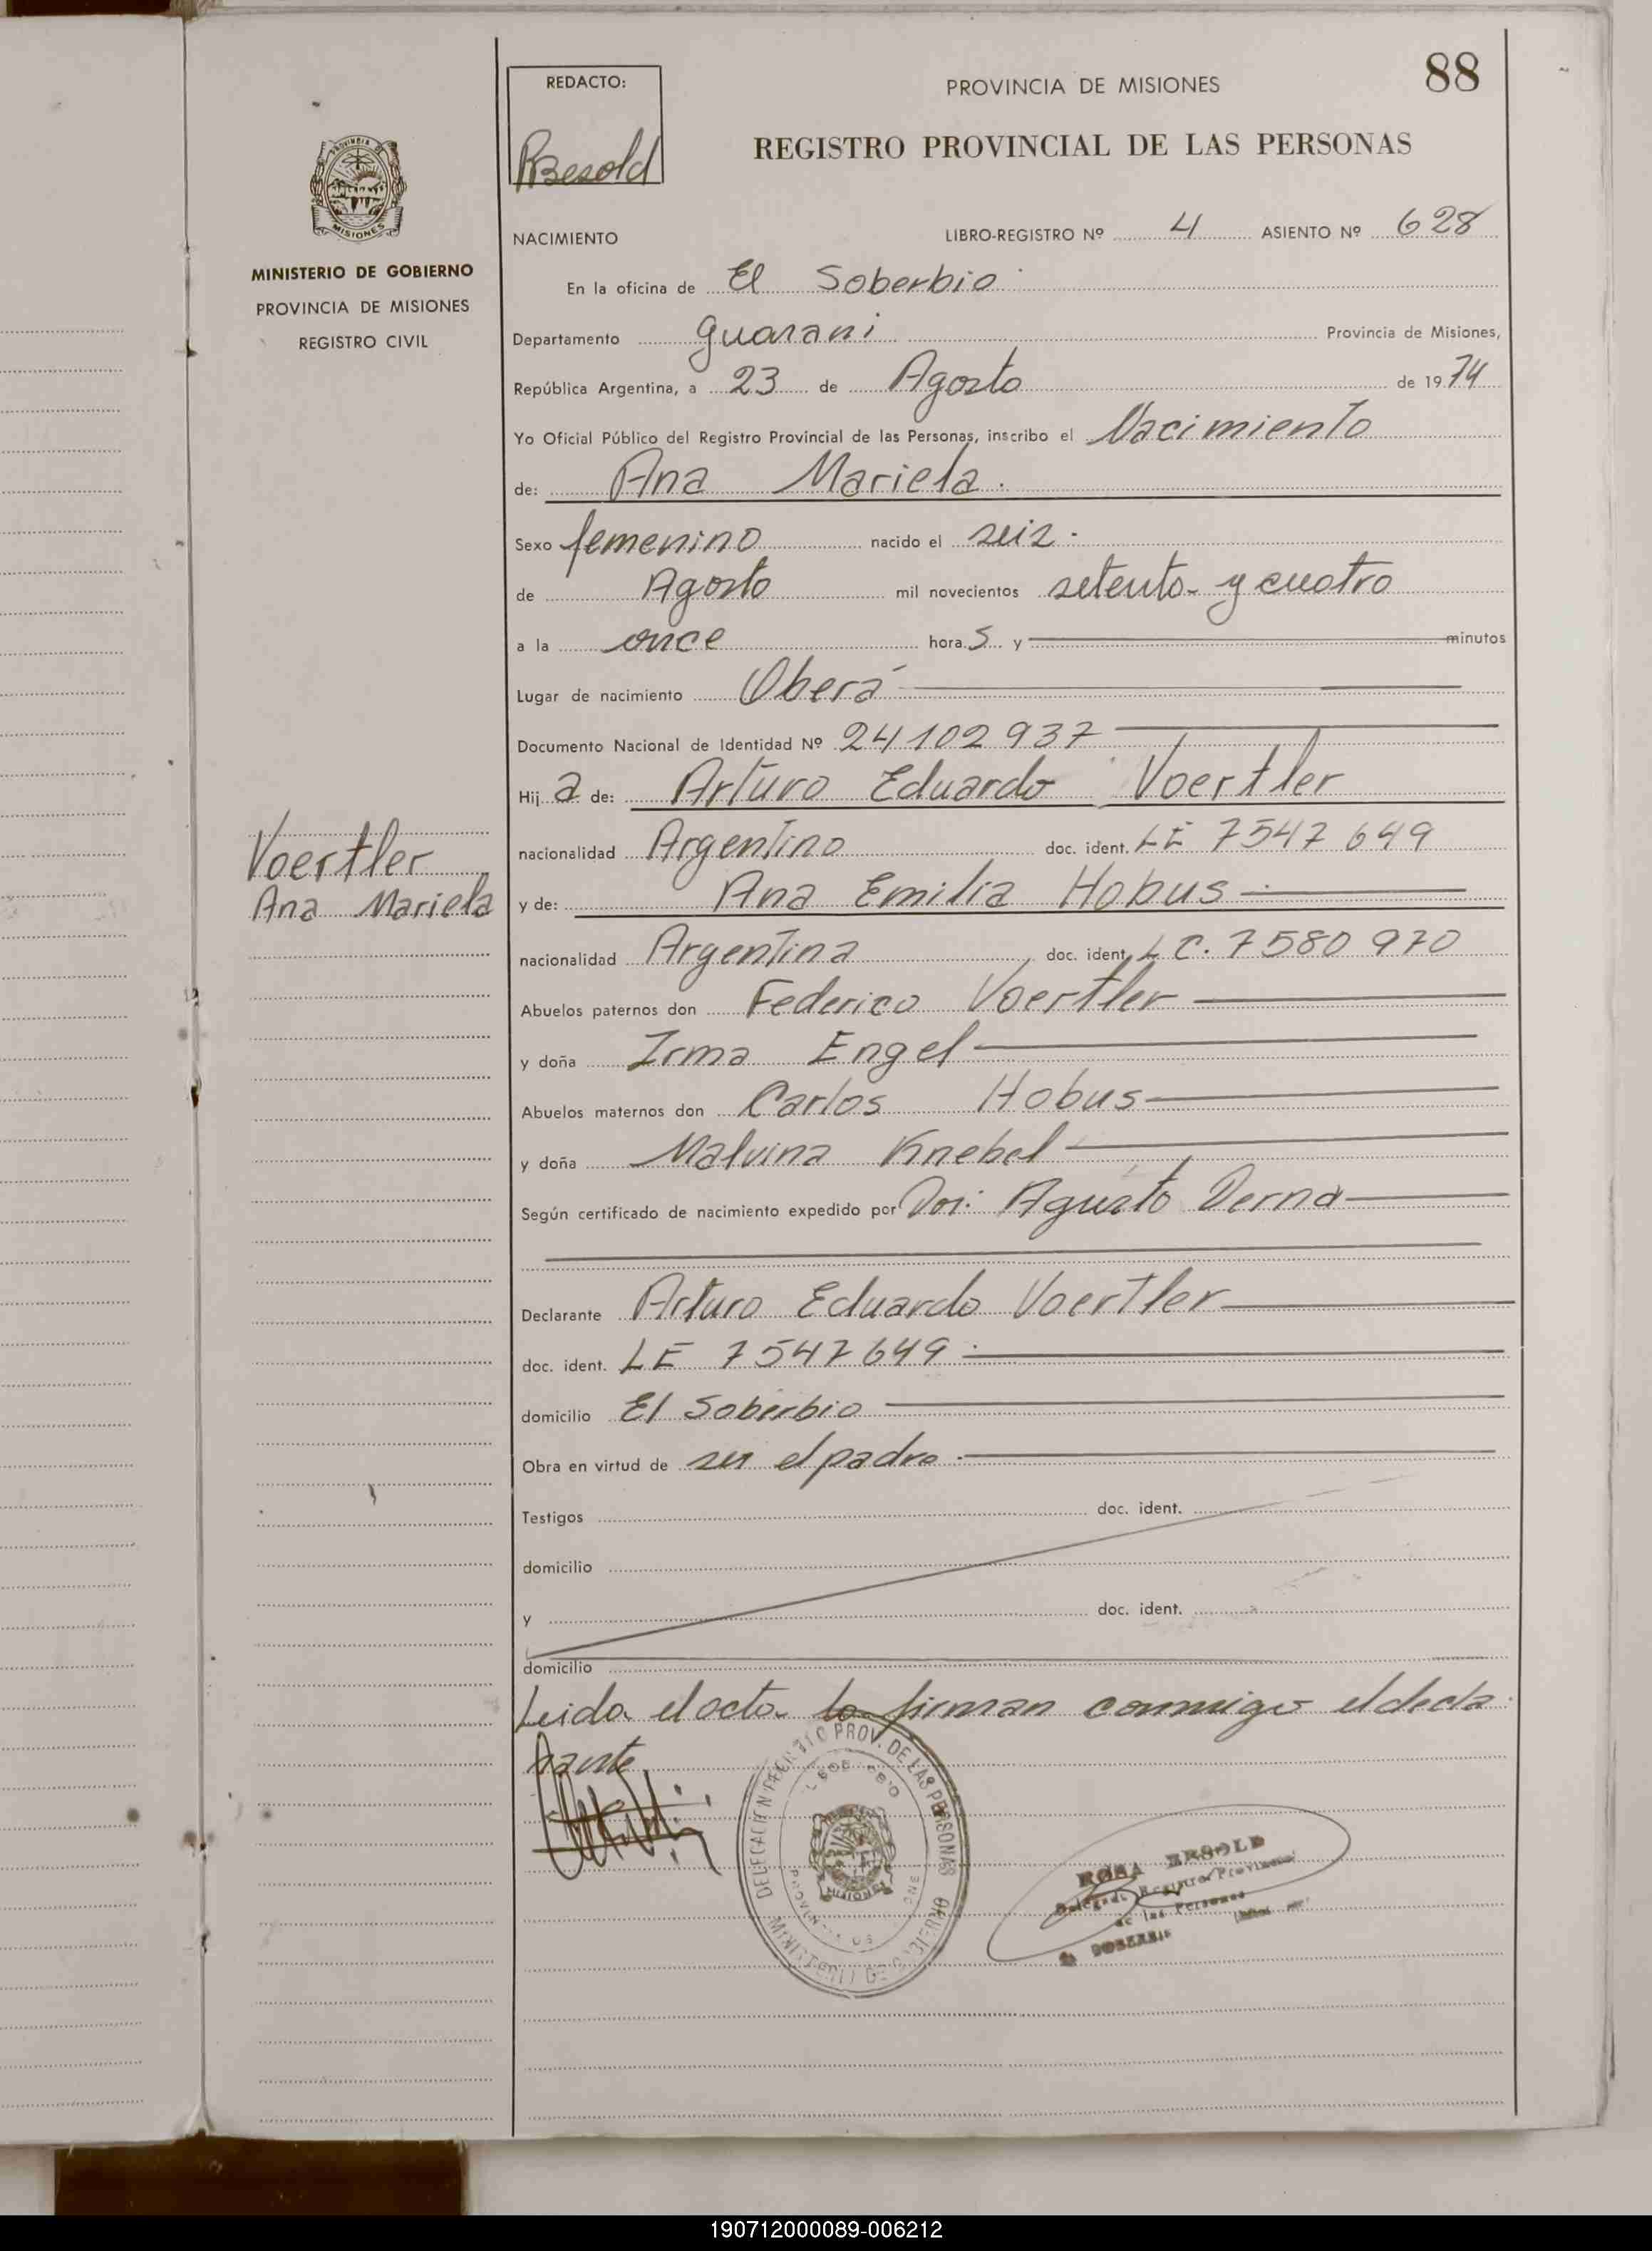 88
REDACTO:
RBesold
PROVINCIA DE MISIONES
REGISTRO PROVINCIAL DE LAS PERSONAS
PROVINCIA DE
MISIONES
MINISTERIO DE GOBIERNO
PROVINCIA DE MISIONES
REGISTRO CIVIL
NACIMIENTO LIBRO-REGISTRO Nº 4 ASIENTO Nº 628
En la oficina de El Soberbio
Departamento Guarani Provincia de Misiones,
República Argentina, a 23 de Agosto de 1974
Yo Oficial Público del Registro Provincial de las Personas, inscribo el Nacimiento
de: Ana Mariela.
Sexo femenino nacido el seis.
de Agosto mil novecientos setenta y cuatro
a la once hora s y minutos
Lugar de nacimiento Oberá
Documento Nacional de Identidad Nº 24102937
Hij a de: Arturo Eduardo Voertler
nacionalidad Argentino doc. ident. LE 7547649
Voertler
Ana Mariela
y de: Ana Emilia Hobus
nacionalidad Argentina doc. ident. L C. 7580970
Abuelos paternos don Federico Voertler
y doña Irma Engel
Abuelos maternos don Carlos Hobus
y doña Malvina Knebel
Según certificado de nacimiento expedido por Agusto Derna
Declarante Arturo Eduardo Voertler
doc. ident. LE 7547649
domicilio El Soberbio
Obra en virtud de ser el padre.
Testigos doc. ident.
domicilio
y doc. ident.
domicilio
Leida el acta la firman conmigo el decla
rante
DELEGACION REGISTRO PROV. DE LAS PERSONAS
MINISTERIO DE GOBIERNO
MISIONES
ROSA BESOLD
Delegada Registro Provincial
de las Personas
EL SOBERBIO
190712000089-006212